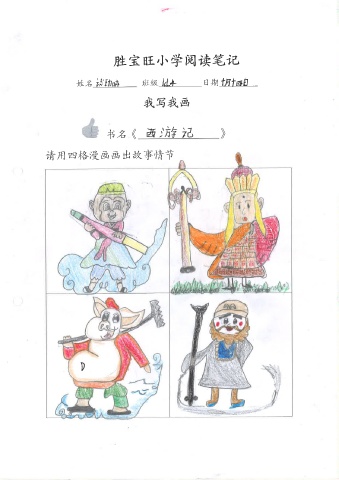 胜宝旺小学阅读笔记
姓名 班级 日期
我写我画
书名《 西游记 》
请用四格漫画画出故事情节